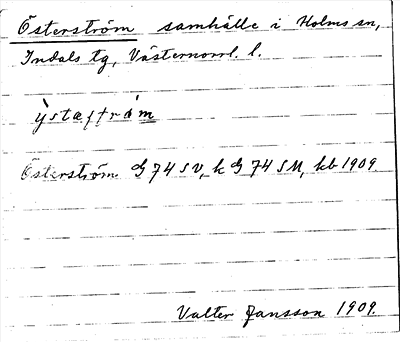 Österström samhälle i Holms sn,
Indals tg, Västernorrl. l.
Österström G 74 SV, k G 74 SM, kb 1909.
Valter Jansson 1909.